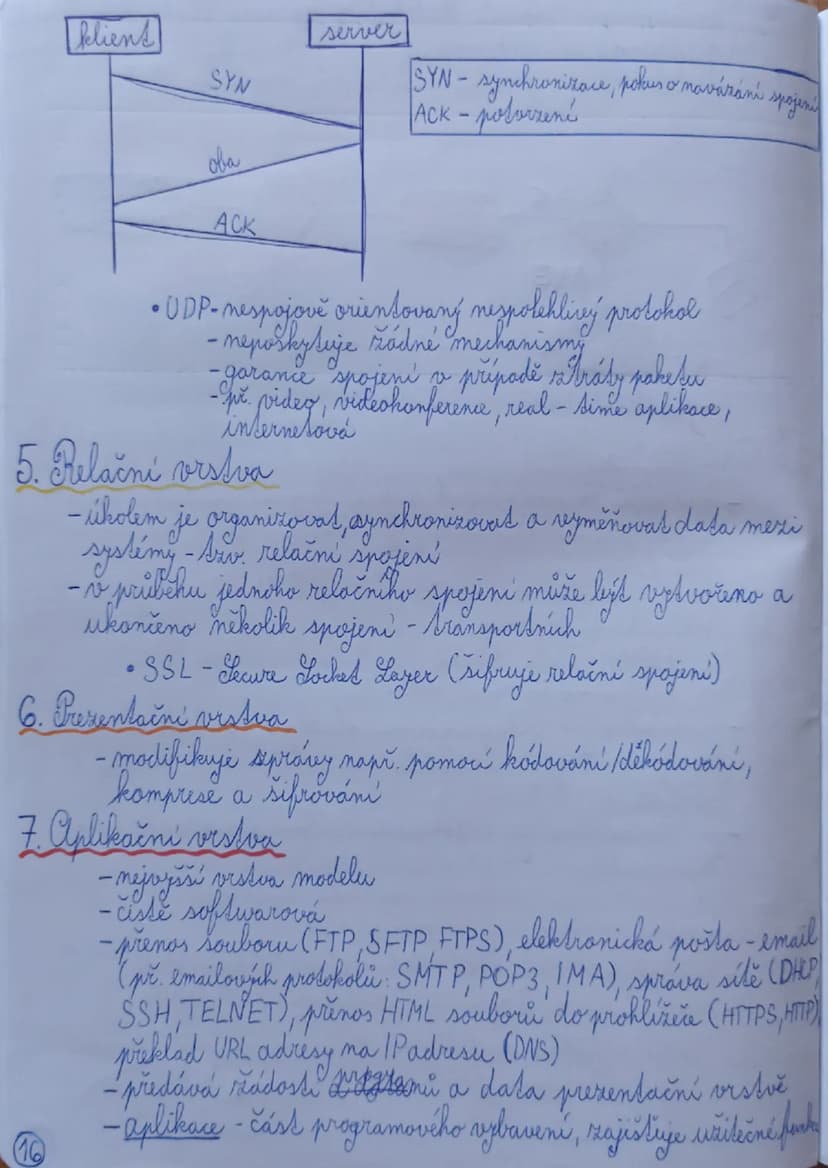 klient
server
SYN
SYN - synchronizace, pokus o navázání spojení
ACK - potvrzení
oba
ACK
• UDP - nespojově orientovaný nespolehlivý protokol
- neposkytuje žádné mechanismy
- garance spojení v případě ztráty paketu
- př. video, videokonference, real - time aplikace,
internetová
5. Relační vrstva
- úkolem je organizovat, synchronizovat a vyměňovat data mezi
systémy - tzv. relační spojení
- v průběhu jednoho relačního spojení může být vytvořeno a
ukončeno několik spojení - transportních
• SSL - Secure Socket Layer (šifruje relační spojení)
6. Prezentační vrstva
- modifikuje zprávy např. pomocí kódování/děkódování,
komprese a šifrování
7. Aplikační vrstva
- nejvyšší vrstva modelu
- čistě softwarová
- přenos souboru (FTP, SFTP, FTPS), elektronická pošta - email
(př. emailových protokolů: SMTP, POP3, IMA), správa sítě (DHCP,
SSH, TELNET), přenos HTML souborů do prohlížeče (HTTPS, HTTP)
překlad URL adresy na IP adresu (DNS)
- předává žádosti a data prezentační vrstvě
- aplikace - část programového vybavení, zajišťuje užitečné
16